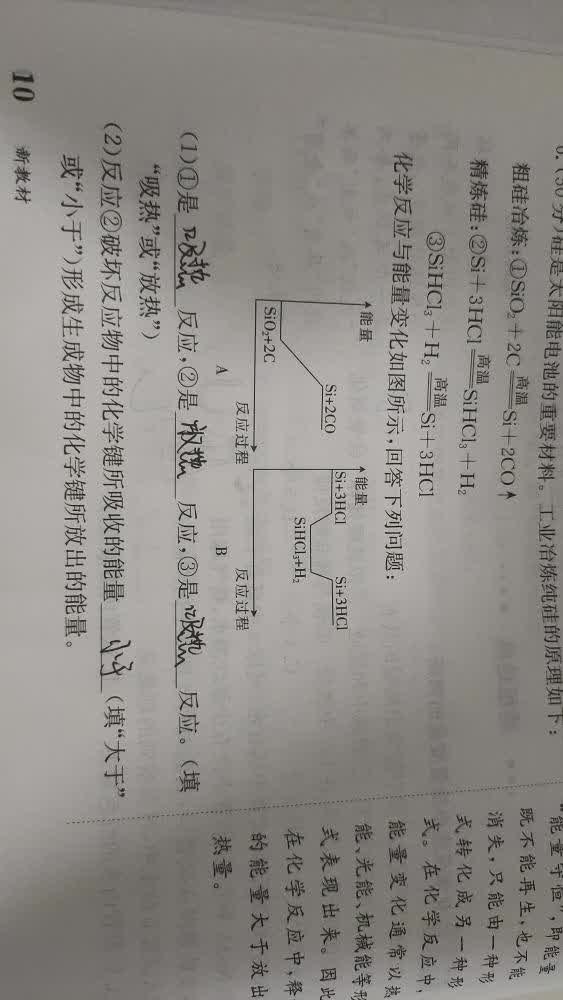 (30分)硅是太阳能电池的重要材料。工业冶炼纯硅的原理如下:
粗硅冶炼:①SiO₂+2C 高温 Si+2CO↑
精炼硅:②Si+3HCl 高温 SiHCl₃+H₂
③SiHCl₃+H₂ 高温 Si+3HCl
化学反应与能量变化如图所示,回答下列问题:
能量
SiO₂+2C
Si+2CO
反应过程
A
能量
Si+3HCl
SiHCl₃+H₂
Si+3HCl
反应过程
B
(1)①是 吸热 反应,②是 放热 反应,③是 吸热 反应。(填
“吸热”或“放热”)
(2)反应②破坏反应物中的化学键所吸收的能量 小于 (填“大于”
或“小于”)形成生成物中的化学键所放出的能量。
10 新教材
能量守恒”,即能量
既不能再生,也不能
消失,只能由一种形
式转化成另一种形
式。在化学反应中,
能量变化通常以热
能、光能、机械能等形
式表现出来。因此
在化学反应中,释
的能量大于放出
热量。